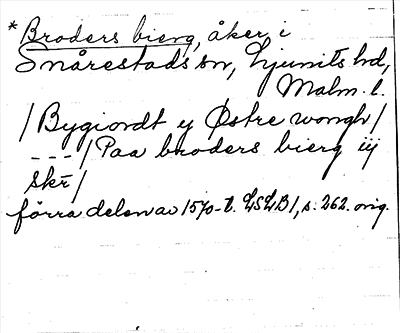 *Broders bierg, åker i
Snårestads sn, Ljunits hd,
Malm. l.
/ Bygiordt y Østre wongh /
--- / Paa broders bierg iij
skr̄ /
förra delen av 1570-t. LSLB 1, s. 262. orig.